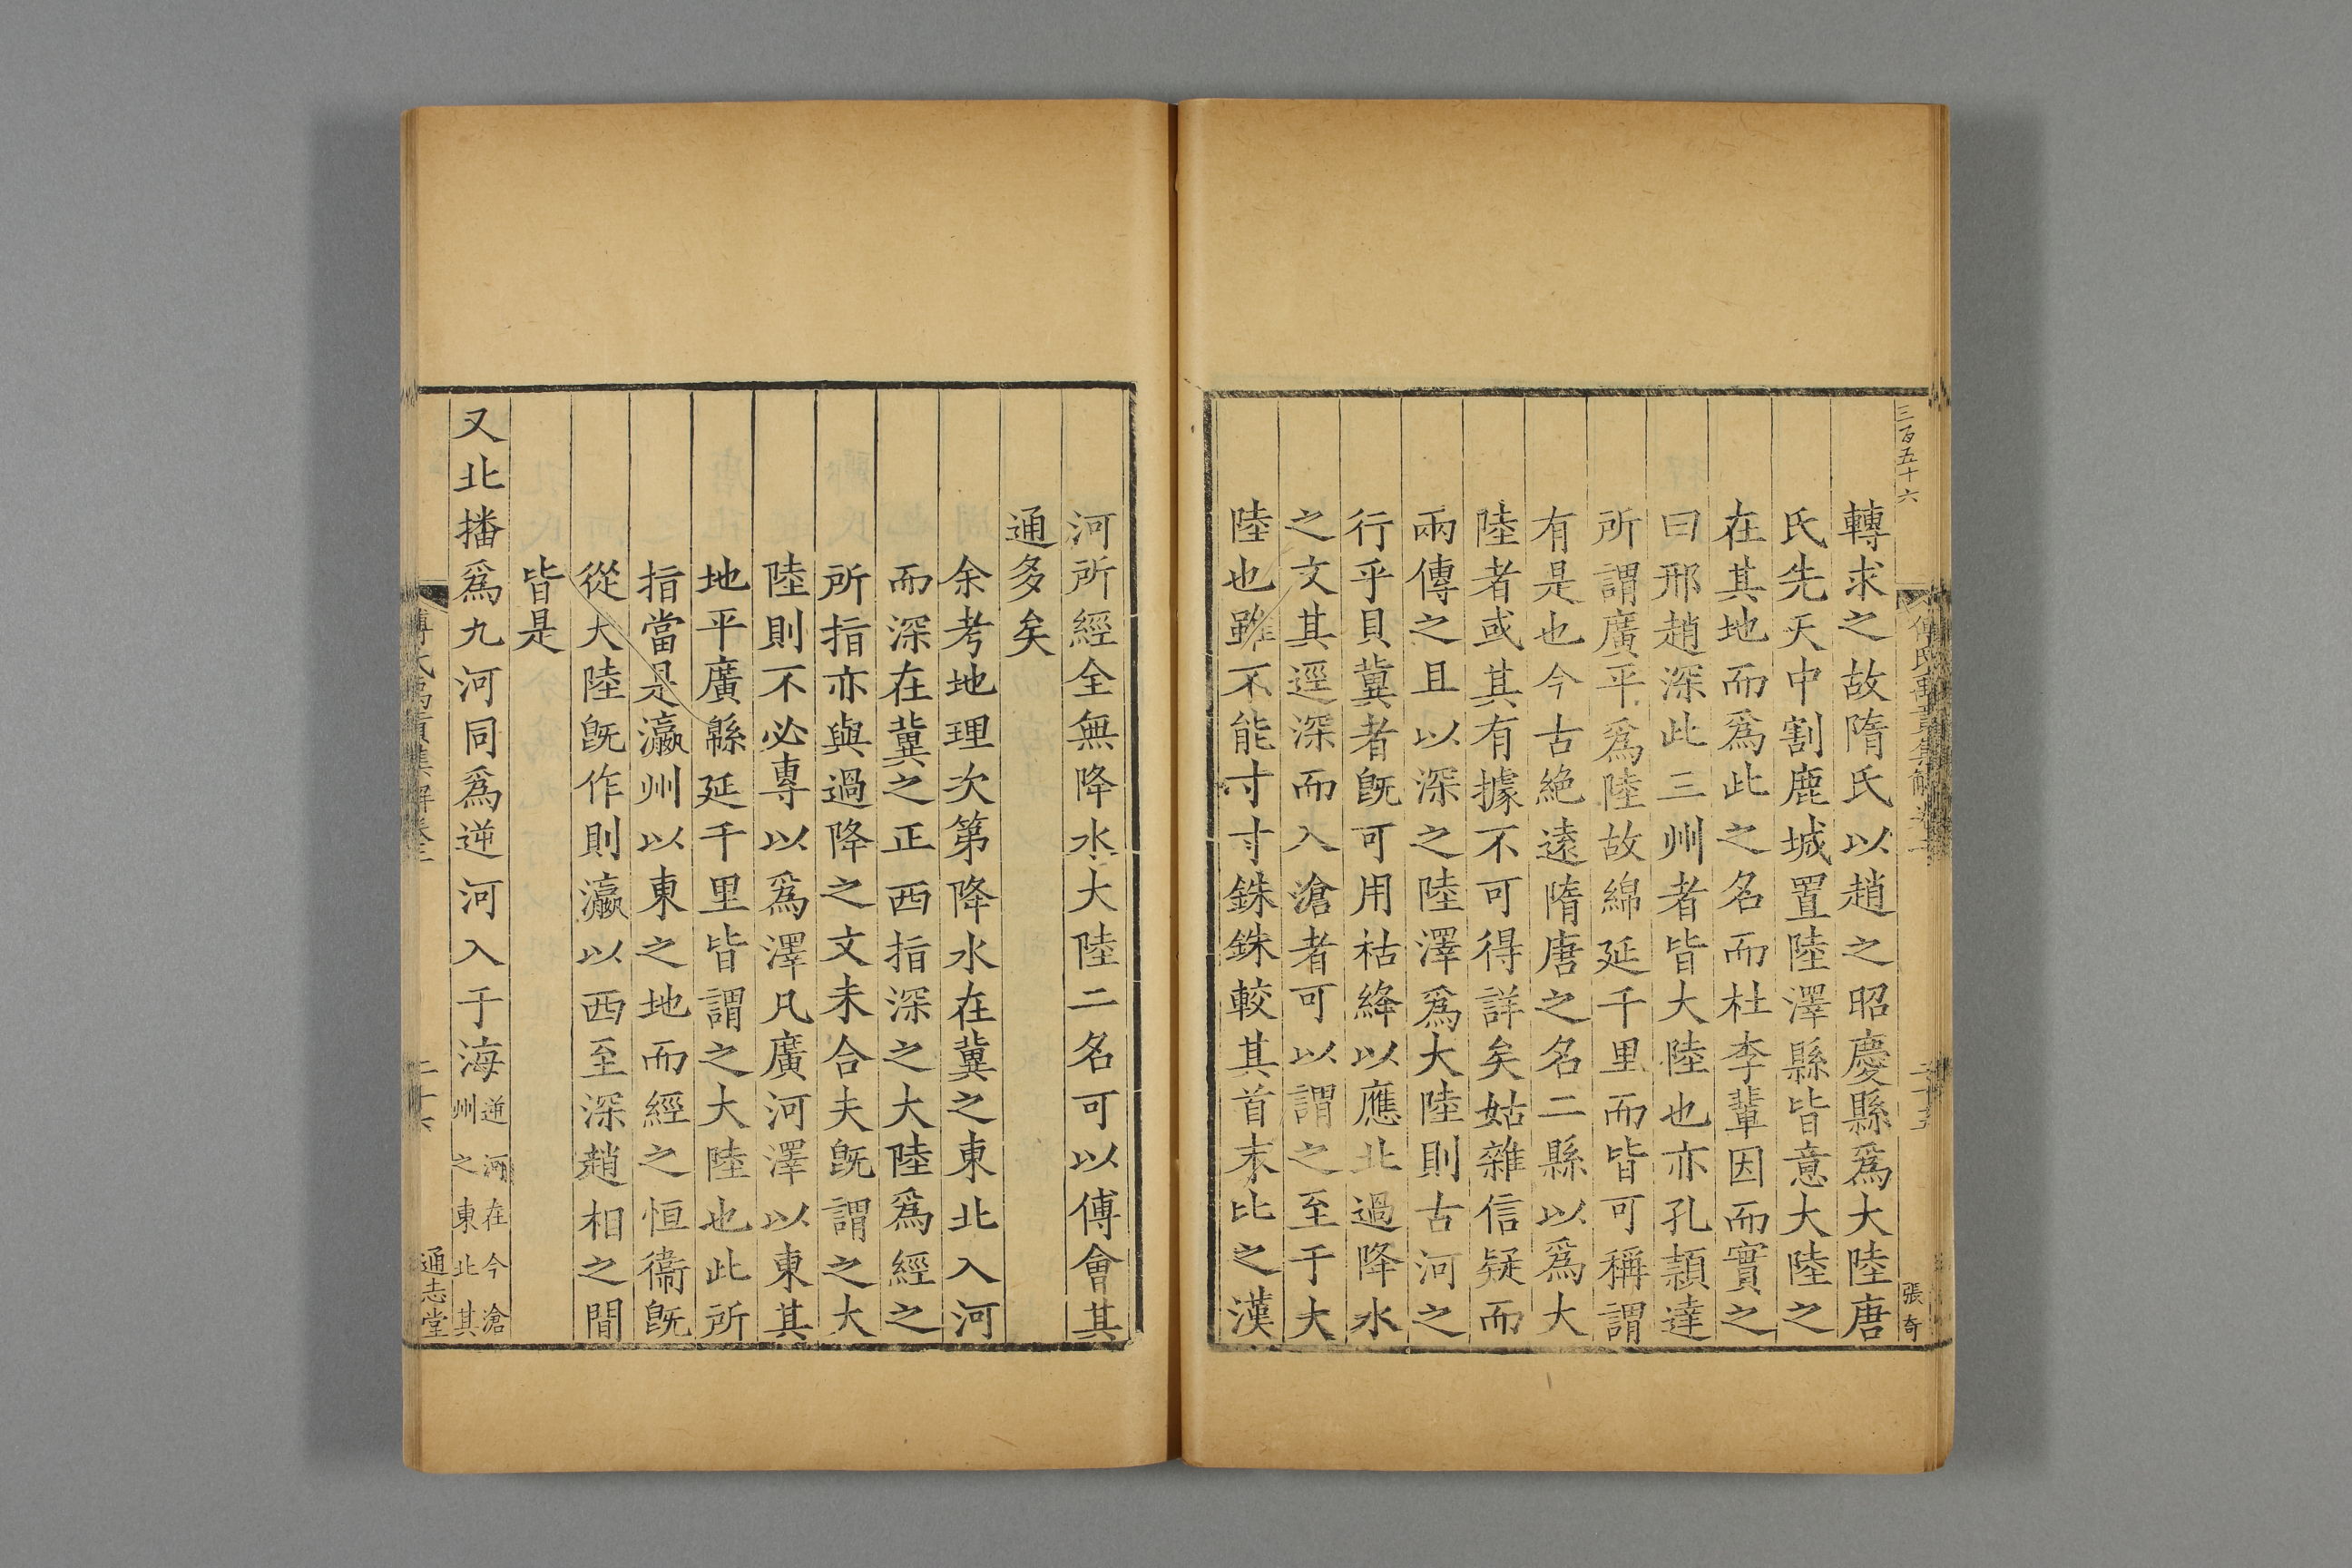 三百五十六
張奇
轉求之故隋氏以趙之昭慶縣爲大陸唐
氏先天中割鹿城置陸澤縣皆意大陸之
在其地而爲此之名而杜李輩因而實之
曰邢趙深此三州者皆大陸也亦孔頴達
所謂廣平爲陸故綿延千里而皆可稱謂
有是也今古絶遠隋唐之名二縣以爲大
陸者或其有據不可得詳矣姑雜信疑而
兩傳之且以深之陸澤爲大陸則古河之
行乎貝冀者旣可用枯絳以應北過降水
之文其逕深而入滄者可以謂之至于大
陸也雖不能寸寸銖銖較其首末比之漢
河所經全無降水大陸二名可以傅會其
通多矣
余考地理次第降水在冀之東北入河
而深在冀之正西指深之大陸爲經之
所指亦與過降之文未合夫旣謂之大
陸則不必專以爲澤凡廣河澤以東其
地平廣緜延千里皆謂之大陸也此所
指當是瀛州以東之地而經之恒衞旣
從大陸旣作則瀛以西至深趙相之間
皆是
又北播爲九河同爲逆河入于海逆河在今滄
州之東北其
傅氏禹貢集解卷二
二十六
通志堂